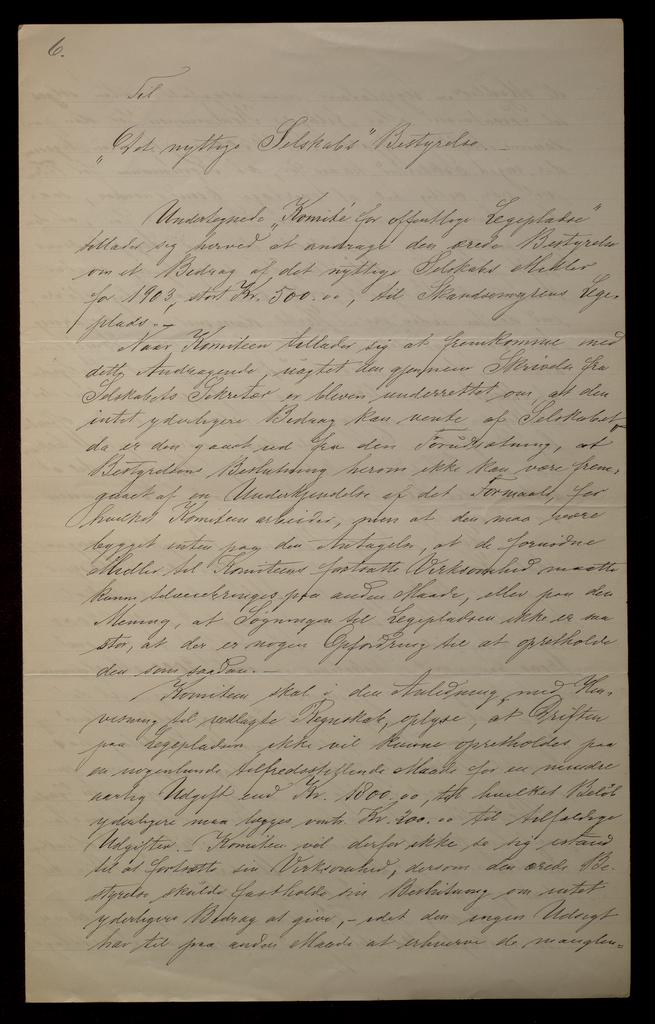 6.
Til
"Det nyttige Selskabs" Bestyrelse. —
Undertegnede "Komité for offentlige Legepladse"
tillader sig herved at andrage den ærede Bestyrelse
om et Bidrag af det nyttige Selskabs Midler
for 1903, stort Kr. 500.00, til Skandsemyrens Lege-
plads. —
Naar Komiteen tillader sig at fremkomme med
dette Andragende, uagtet den gjennem Skrivelse fra
Selskabets Sekretær er bleven underrettet om, at den
intet yderligere Bidrag kan vente af Selskabet,
da er den gaaet ud fra den Forudsætning, at
Bestyrelsens Beslutning herom ikke kan være frem-
gaaet af en Underkjendelse af det Formaal, for
hvilket Komiteen arbeider, men at den maa være
bygget enten paa den Antagelse, at de fornødne
Midler til Komiteens fortsatte Virksomhed maatte
kunne tilveiebringes paa anden Maade, eller paa den
Mening, at Søgningen til Legepladsen ikke er saa
stor, at der er nogen Opfordring til at opretholde
den som saadan. —
Komiteen skal i den Anledning, med Hen-
visning til vedlagte Regnskab, oplyse, at Driften
paa Legepladsen ikke vil kunne opretholdes paa
en nogenlunde tilfredsstillende Maade for en mindre
aarlig Udgift end Kr. 1800.00, til hvilket Beløb
yderligere maa lægges Kr. 200.00 til tilfældige
Udgifter. — Komiteen vil derfor ikke se sig istand
til at fortsætte sin Virksomhed, dersom den ærede Be-
styrelse skulde fastholde sin Beslutning om intet
yderligere Bidrag at give, — idet den ingen Udsigt
har til paa anden Maade at erhverve de manglen-